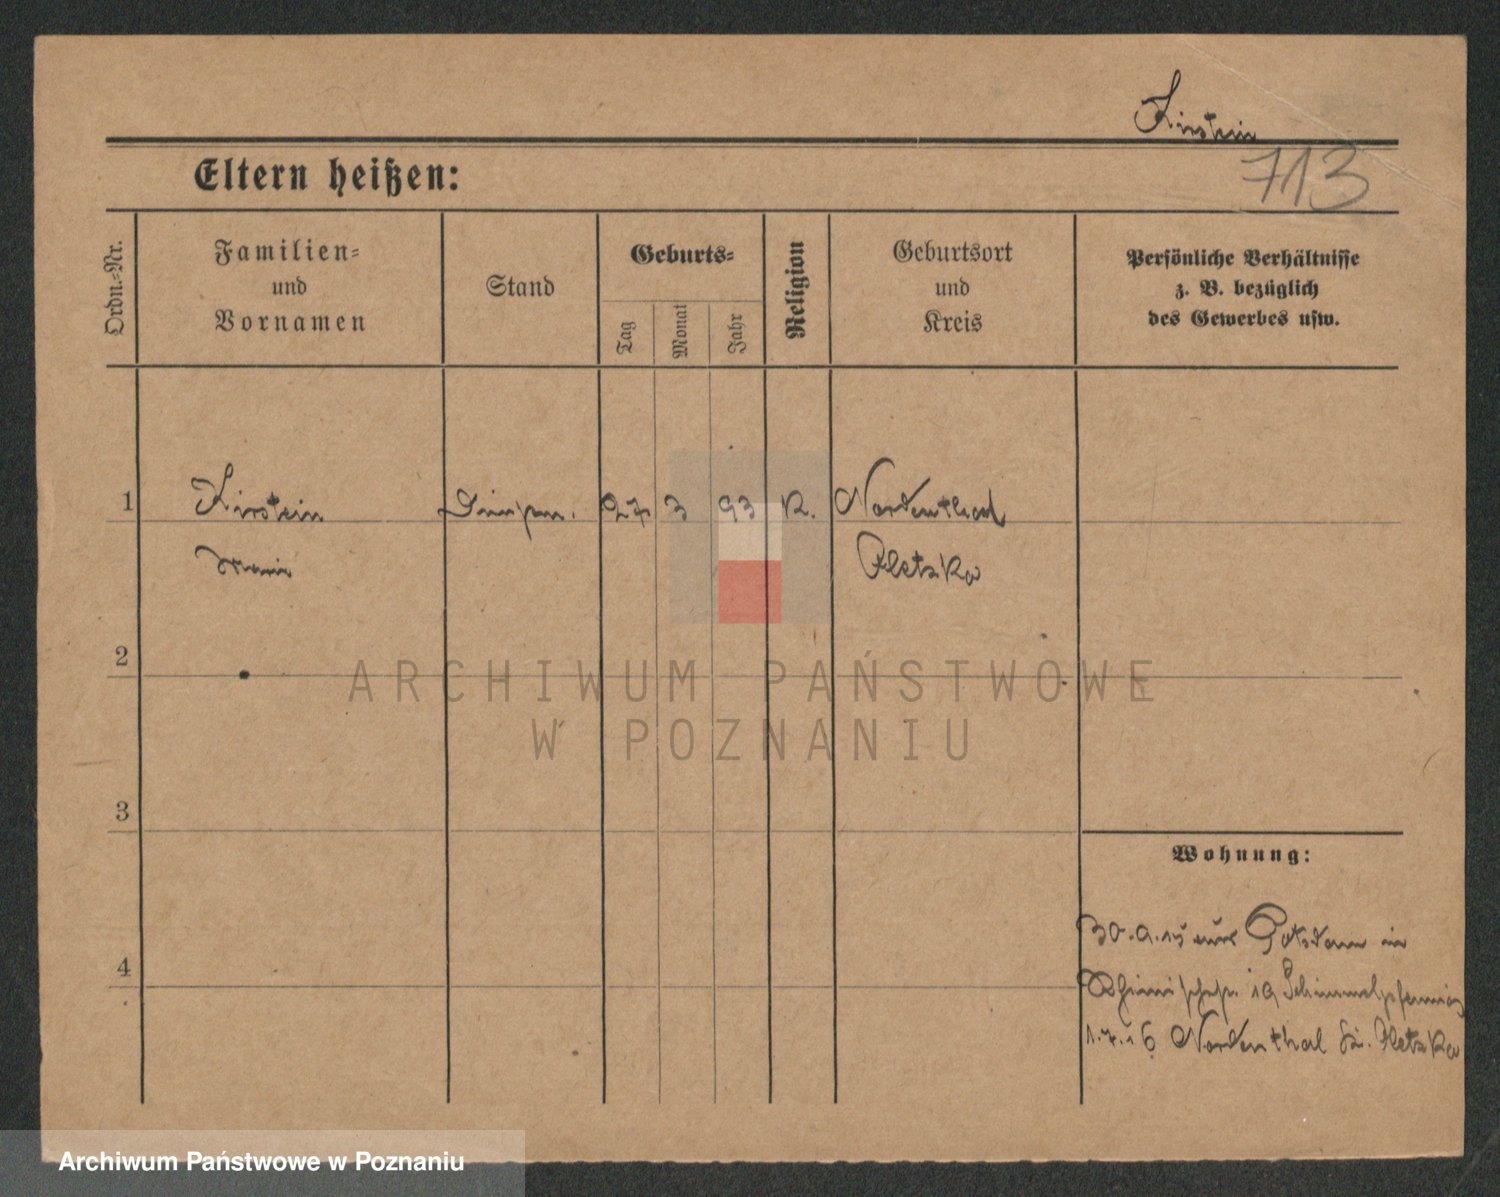 Kirstein
713
Eltern heißen:
Ordn.-Nr.
Familien-
und
Vornamen
Stand
Geburts-
Tag
Monat
Jahr
Religion
Geburtsort
und
Kreis
Persönliche Verhältnisse
z. B. bezüglich
des Gewerbes usw.
1
Kirstein
27 3 93 K.
Nordenthal
Pletzka
2
3
4
ARCHIWUM PAŃSTWOWE
W POZNANIU
Wohnung:
30.9.15 Potsdam in
19 Schimmelpfennig
1.7.16 Nordenthal Pletzka
Archiwum Państwowe w Poznaniu